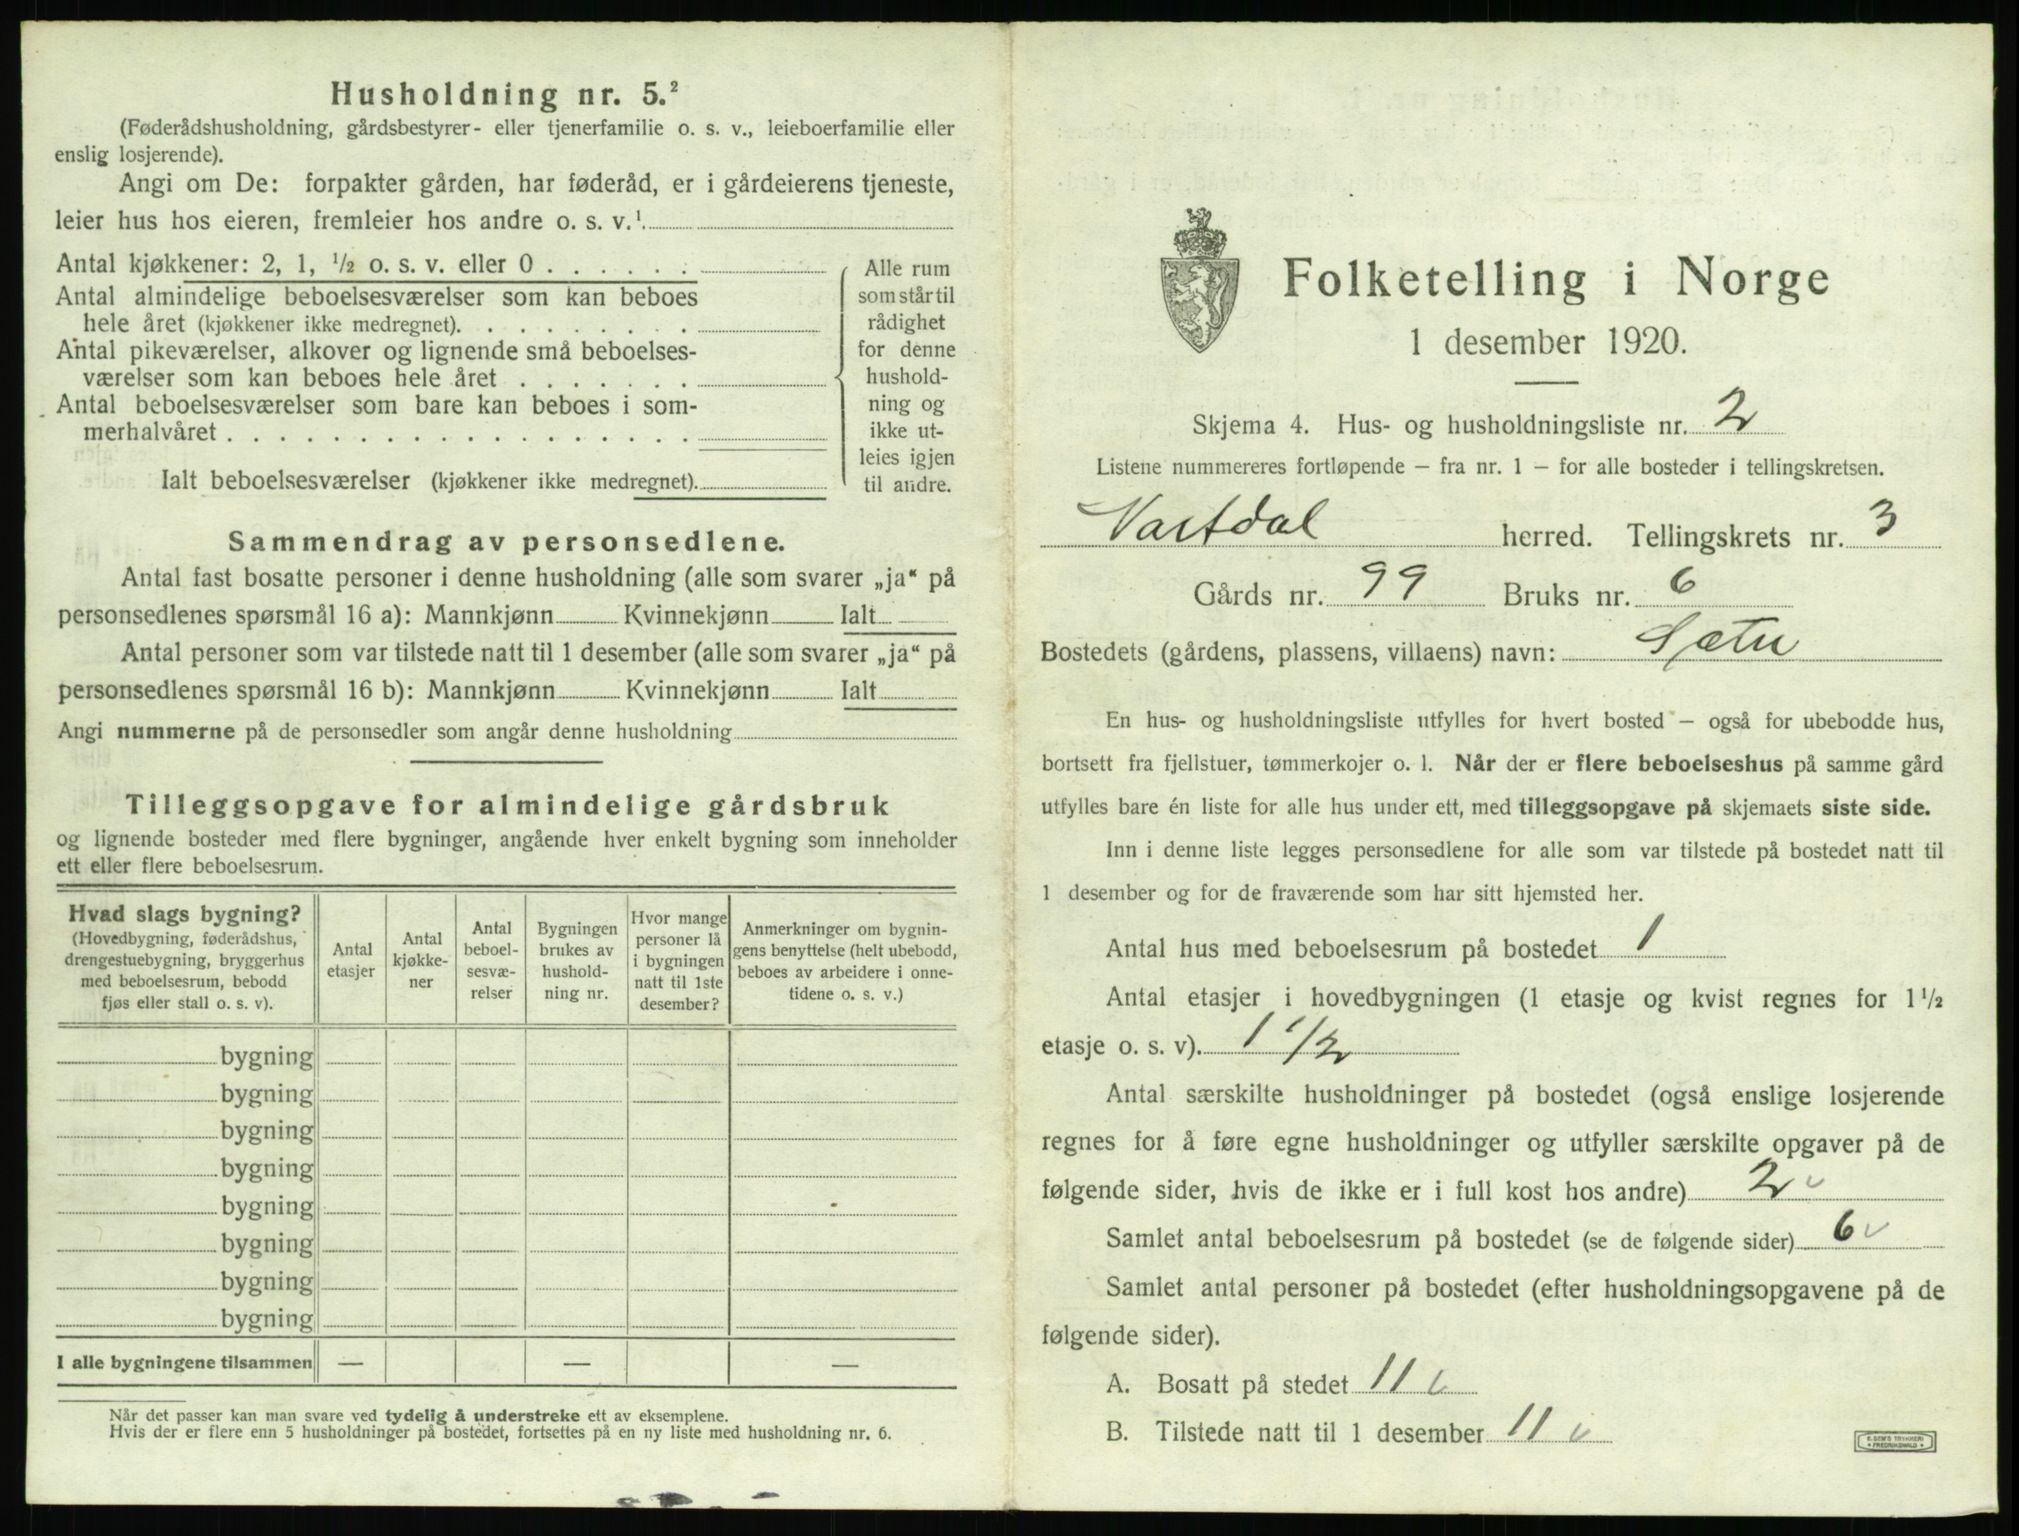 Husholdning nr. 5.²
(Føderådshusholdning, gårdsbestyrer- eller tjenerfamilie o. s. v., leieboerfamilie eller
enslig losjerende).
Angi om De: forpakter gården, har føderåd, er i gårdeierens tjeneste,
leier hus hos eieren, fremleier hos andre o. s. v.¹
Antal kjøkkener: 2, 1, ½ o. s. v. eller 0 . . . . . .
Antal almindelige beboelsesværelser som kan beboes
hele året (kjøkkener ikke medregnet). . . . . . . . .
Antal pikeværelser, alkover og lignende små beboelses-
værelser som kan beboes hele året . . . . . . .
Antal beboelsesværelser som bare kan beboes i som-
merhalvåret . . . . . . . . . . . . . . . . . .
Ialt beboelsesværelser (kjøkkener ikke medregnet).
Alle rum
som står til
rådighet
for denne
hushold-
ning og
ikke ut-
leies igjen
til andre.
Sammendrag av personsedlene.
Antal fast bosatte personer i denne husholdning (alle som svarer „ja“ på
personsedlenes spørsmål 16 a): Mannkjønn Kvinnekjønn Ialt
Antal personer som var tilstede natt til 1 desember (alle som svarer „ja“ på
personsedlenes spørsmål 16 b): Mannkjønn Kvinnekjønn Ialt
Angi nummerne på de personsedler som angår denne husholdning
Tilleggsopgave for almindelige gårdsbruk
og lignende bosteder med flere bygninger, angående hver enkelt bygning som inneholder
ett eller flere beboelsesrum.
Hvad slags bygning?
(Hovedbygning, føderådshus,
drengestuebygning, bryggerhus
med beboelsesrum, bebodd
fjøs eller stall o. s. v).
Antal
etasjer
Antal
kjøkke-
ner
Antal
beboel-
sesvæ-
relser
Bygningen
brukes av
hushold-
ning nr.
Hvor mange
personer lå
i bygningen
natt til 1ste
desember?
Anmerkninger om bygnin-
gens benyttelse (helt ubebodd,
beboes av arbeidere i onne-
tidene o. s. v.)
bygning
bygning
bygning
bygning
bygning
bygning
bygning
bygning
I alle bygningene tilsammen — — —
Når det passer kan man svare ved tydelig å understreke ett av eksemplene.
Hvis der er flere enn 5 husholdninger på bostedet, fortsettes på en ny liste med husholdning nr. 6.
Folketelling i Norge
1 desember 1920.
Skjema 4. Hus- og husholdningsliste nr. 2
Listene nummereres fortløpende – fra nr. 1 – for alle bosteder i tellingskretsen.
Vartdal herred. Tellingskrets nr. 3
Gårds nr. 99 Bruks nr. 6
Bostedets (gårdens, plassens, villaens) navn: Sætre
En hus- og husholdningsliste utfylles for hvert bosted – også for ubebodde hus,
bortsett fra fjellstuer, tømmerkojer o. l. Når der er flere beboelseshus på samme gård
utfylles bare én liste for alle hus under ett, med tilleggsopgave på skjemaets siste side.
Inn i denne liste legges personsedlene for alle som var tilstede på bostedet natt til
1 desember og for de fraværende som har sitt hjemsted her.
Antal hus med beboelsesrum på bostedet 1
Antal etasjer i hovedbygningen (1 etasje og kvist regnes for 1½
etasje o. s. v). 1 1/2
Antal særskilte husholdninger på bostedet (også enslige losjerende
regnes for å føre egne husholdninger og utfyller særskilte opgaver på de
følgende sider, hvis de ikke er i full kost hos andre) 2
Samlet antal beboelsesrum på bostedet (se de følgende sider) 6
Samlet antal personer på bostedet (efter husholdningsopgavene på de
følgende sider).
A. Bosatt på stedet 11
B. Tilstede natt til 1 desember 11